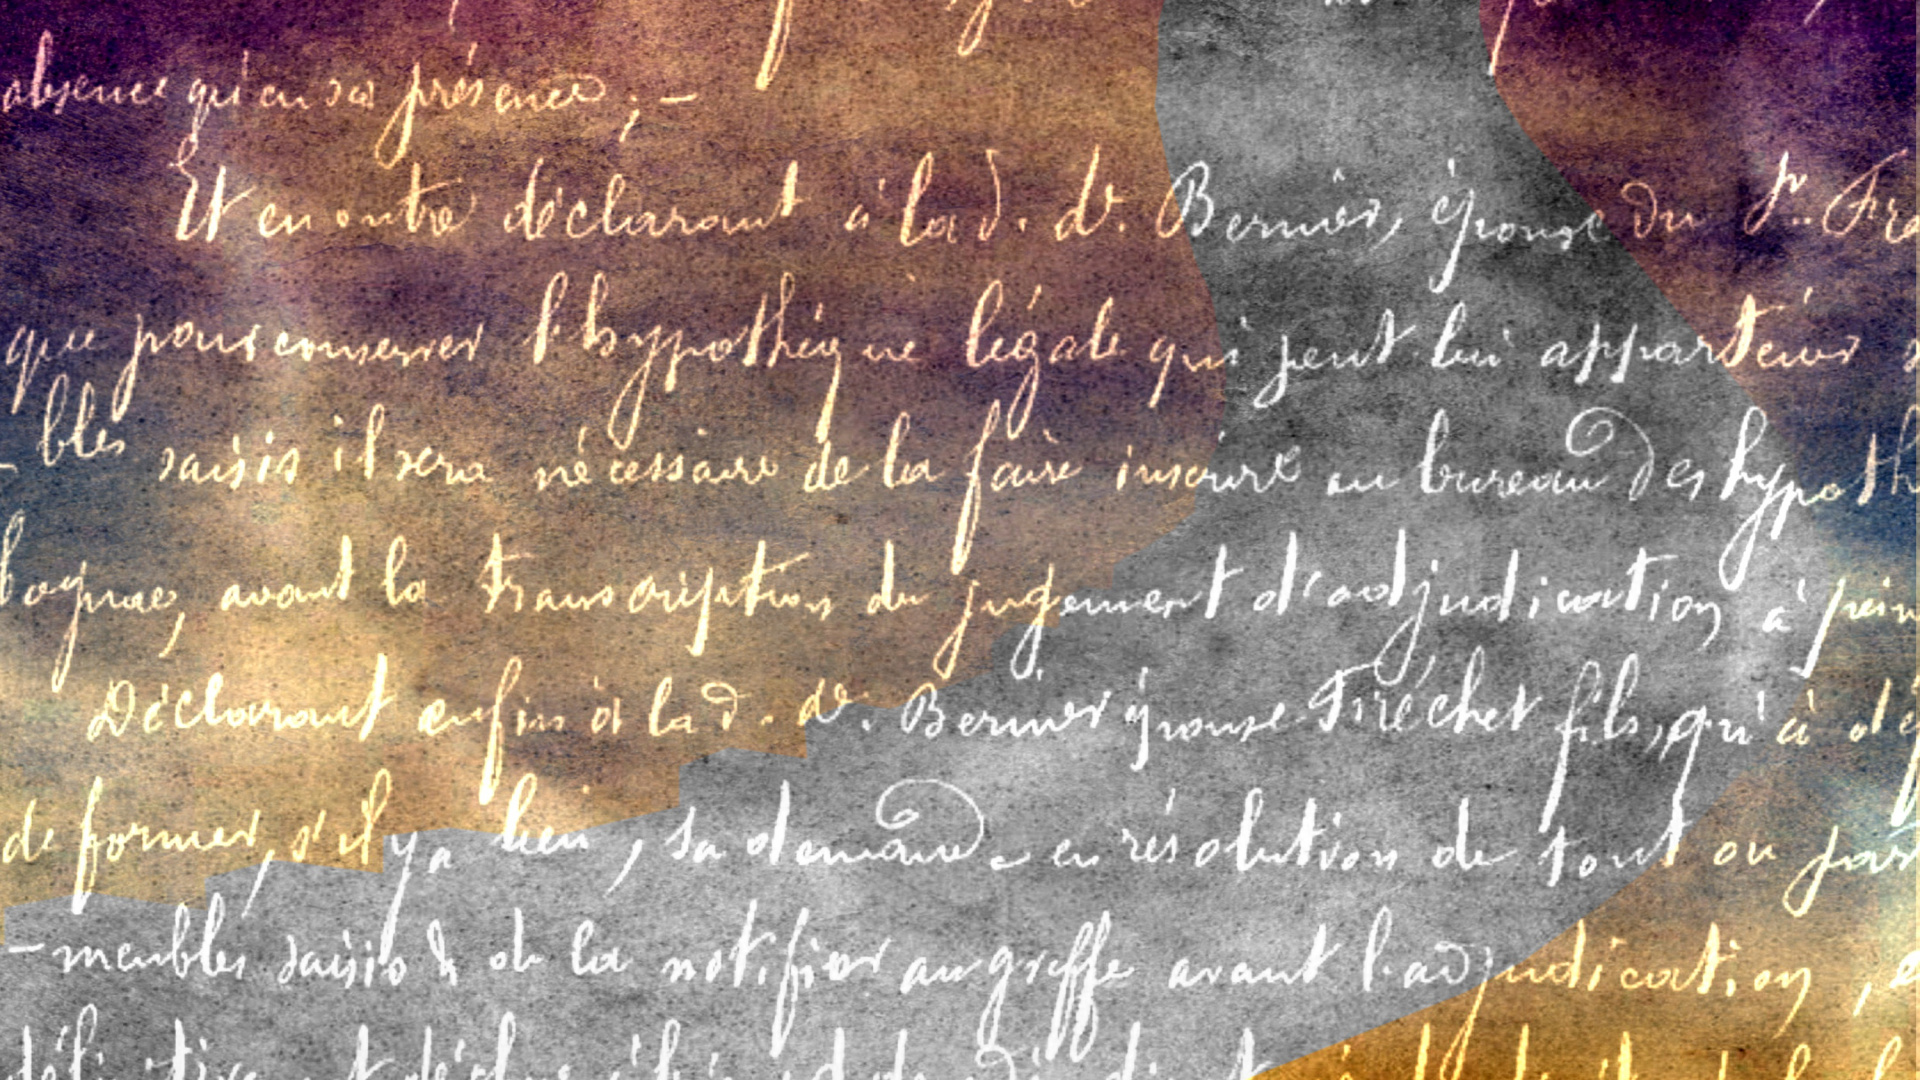 absence qu'en sa présence ; –
Et en outre déclarant à la d. de. Bernier, épouse du Sr. Fré
que pour conserver l'hypothèque légale qui peut lui appartenir
- bles saisis il sera nécessaire de la faire inscrire au bureau des hypoth
avant la transcription du jugement d'adjudication à pein
Déclarant enfin à la d. de. Bernier épouse Fréchet fils, qu'à dé
de former, s'il y a lieu, sa demande en résolution de tout ou par
- meubles saisis & de la notifier au greffe avant l'adjudication,